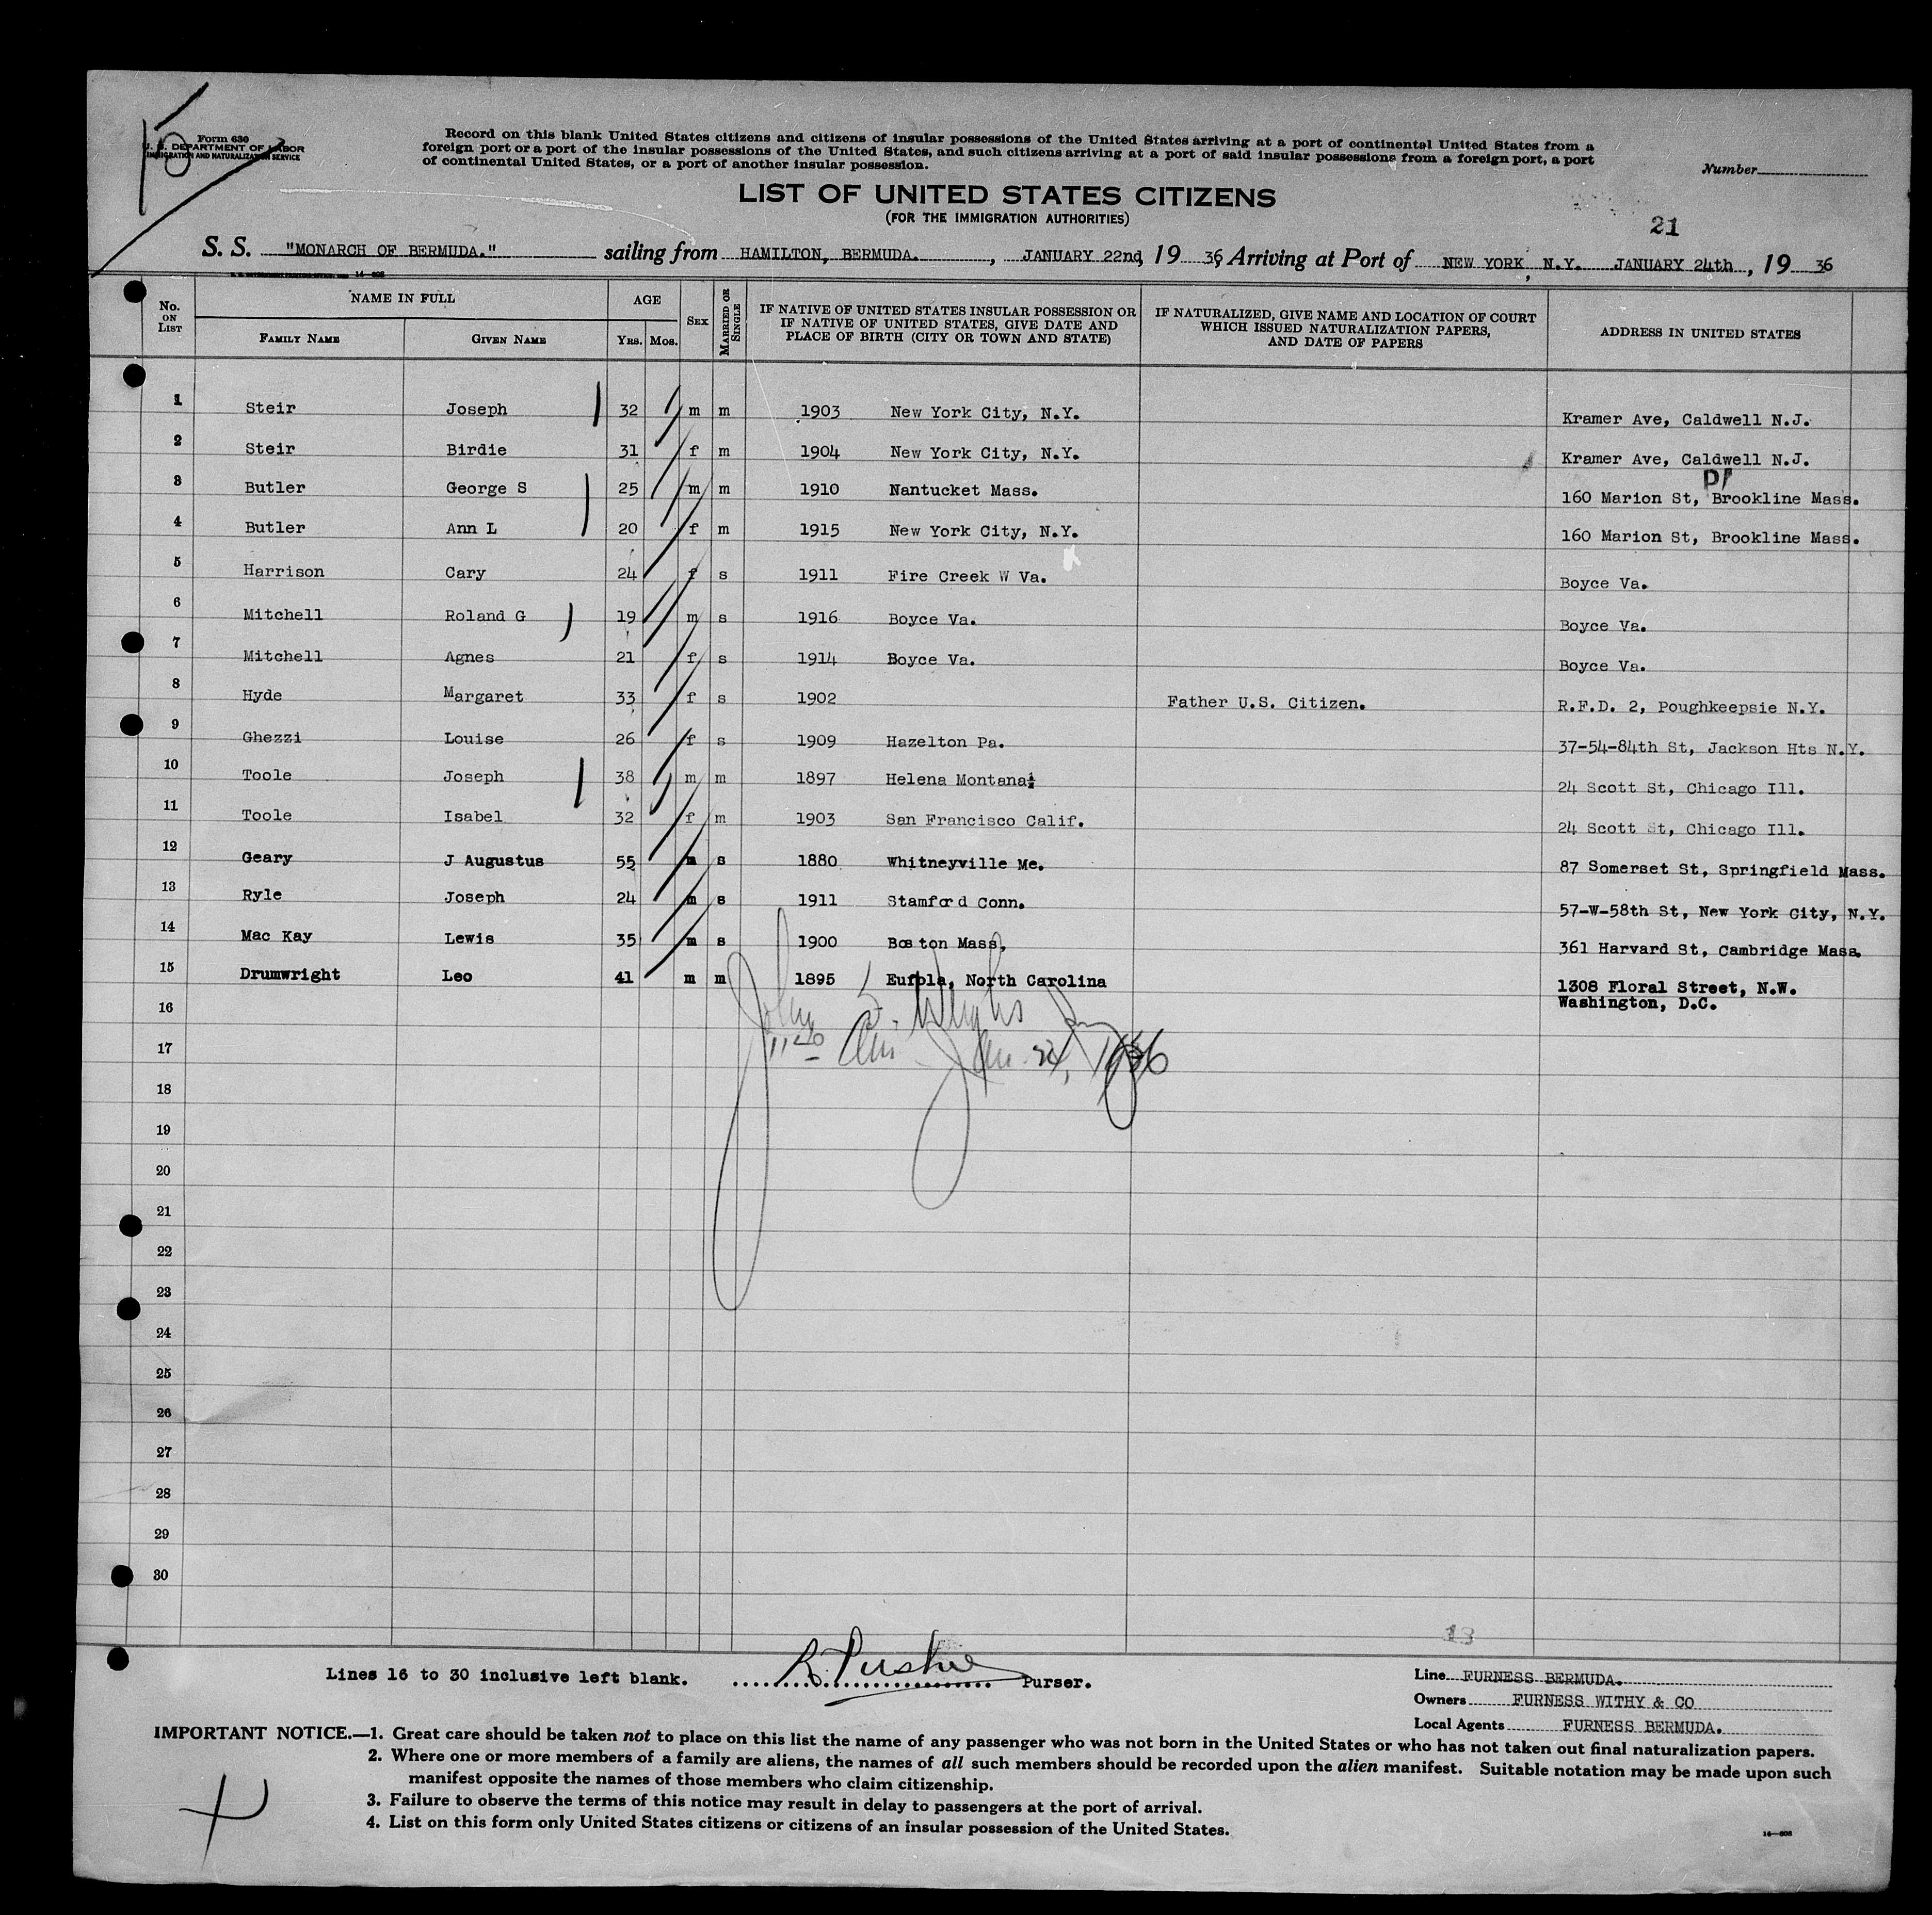 Form 630
U. S. DEPARTMENT OF LABOR
IMMIGRATION AND NATURALIZATION SERVICE
Record on this blank United States citizens and citizens of insular possessions of the United States arriving at a port of continental United States from a
foreign port or a port of the insular possessions of the United States, and such citizens arriving at a port of said insular possessions from a foreign port, a port
of continental United States, or a port of another insular possession.
Number
LIST OF UNITED STATES CITIZENS
(FOR THE IMMIGRATION AUTHORITIES)
21
S. S. "MONARCH OF BERMUDA." sailing from HAMILTON, BERMUDA. , JANUARY 22nd, 19 36, Arriving at Port of NEW YORK, N.Y. JANUARY 24th, 19 36
No. ON LIST
NAME IN FULL
FAMILY NAME GIVEN NAME
AGE
YRS. MOS.
SEX
MARRIED OR SINGLE
IF NATIVE OF UNITED STATES INSULAR POSSESSION OR
IF NATIVE OF UNITED STATES, GIVE DATE AND
PLACE OF BIRTH (CITY OR TOWN AND STATE)
IF NATURALIZED, GIVE NAME AND LOCATION OF COURT
WHICH ISSUED NATURALIZATION PAPERS,
AND DATE OF PAPERS
ADDRESS IN UNITED STATES
1 Steir Joseph 32 m m 1903 New York City, N.Y. Kramer Ave, Caldwell N.J.
2 Steir Birdie 31 f m 1904 New York City, N.Y. Kramer Ave, Caldwell N.J.
3 Butler George S 25 m m 1910 Nantucket Mass. 160 Marion St, Brookline Mass.
4 Butler Ann L 20 f m 1915 New York City, N.Y. 160 Marion St, Brookline Mass.
5 Harrison Cary 24 f s 1911 Fire Creek W Va. Boyce Va.
6 Mitchell Roland G 19 m s 1916 Boyce Va. Boyce Va.
7 Mitchell Agnes 21 f s 1914 Boyce Va. Boyce Va.
8 Hyde Margaret 33 f s 1902 Father U.S. Citizen. R.F.D. 2, Poughkeepsie N.Y.
9 Ghezzi Louise 26 f s 1909 Hazelton Pa. 37-54-84th St, Jackson Hts N.Y.
10 Toole Joseph 38 m m 1897 Helena Montana. 24 Scott St, Chicago Ill.
11 Toole Isabel 32 f m 1903 San Francisco Calif. 24 Scott St, Chicago Ill.
12 Geary J Augustus 55 m s 1880 Whitneyville Me. 87 Somerset St, Springfield Mass.
13 Ryle Joseph 24 m s 1911 Stamford Conn. 57-W-58th St, New York City, N.Y.
14 Mac Kay Lewis 35 m s 1900 Boston Mass, 361 Harvard St, Cambridge Mass.
15 Drumwright Leo 41 m m 1895 Eufola, North Carolina 1308 Floral Street, N.W.
Washington, D.C.
16
17
18
19
20
21
22
23
24
25
26
27
28
29
30
13
Lines 16 to 30 inclusive left blank. Purser.
Line FURNESS BERMUDA.
Owners FURNESS WITHY & CO
Local Agents FURNESS BERMUDA.
IMPORTANT NOTICE.—1. Great care should be taken not to place on this list the name of any passenger who was not born in the United States or who has not taken out final naturalization papers.
2. Where one or more members of a family are aliens, the names of all such members should be recorded upon the alien manifest. Suitable notation may be made upon such
manifest opposite the names of those members who claim citizenship.
3. Failure to observe the terms of this notice may result in delay to passengers at the port of arrival.
4. List on this form only United States citizens or citizens of an insular possession of the United States.